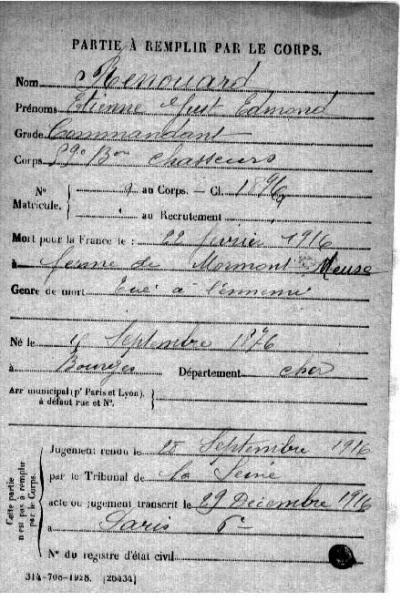 PARTIE À REMPLIR PAR LE CORPS.
Nom Renouard
Prénoms Etienne Just Edmond
Grade Commandant
Corps 59e Bon chasseurs
N° Matricule. { au Corps. — Cl. 1896
au Recrutement
Mort pour la France le : 22 février 1916
à ferme de Mormont Meuse
Genre de mort Tué à l'ennemi
Né le Septembre 1876
à Bourges Département Cher
Arr municipal (p' Paris et Lyon),
à défaut rue et N°.
Cette partie n'est pas à remplir par le Corps.
Jugement rendu le Septembre 1916
par le Tribunal de la Seine
acte ou jugement transcrit le 29 Décembre 1916
à Paris 6e
N° du registre d'état civil
314-708-1928. [26434]